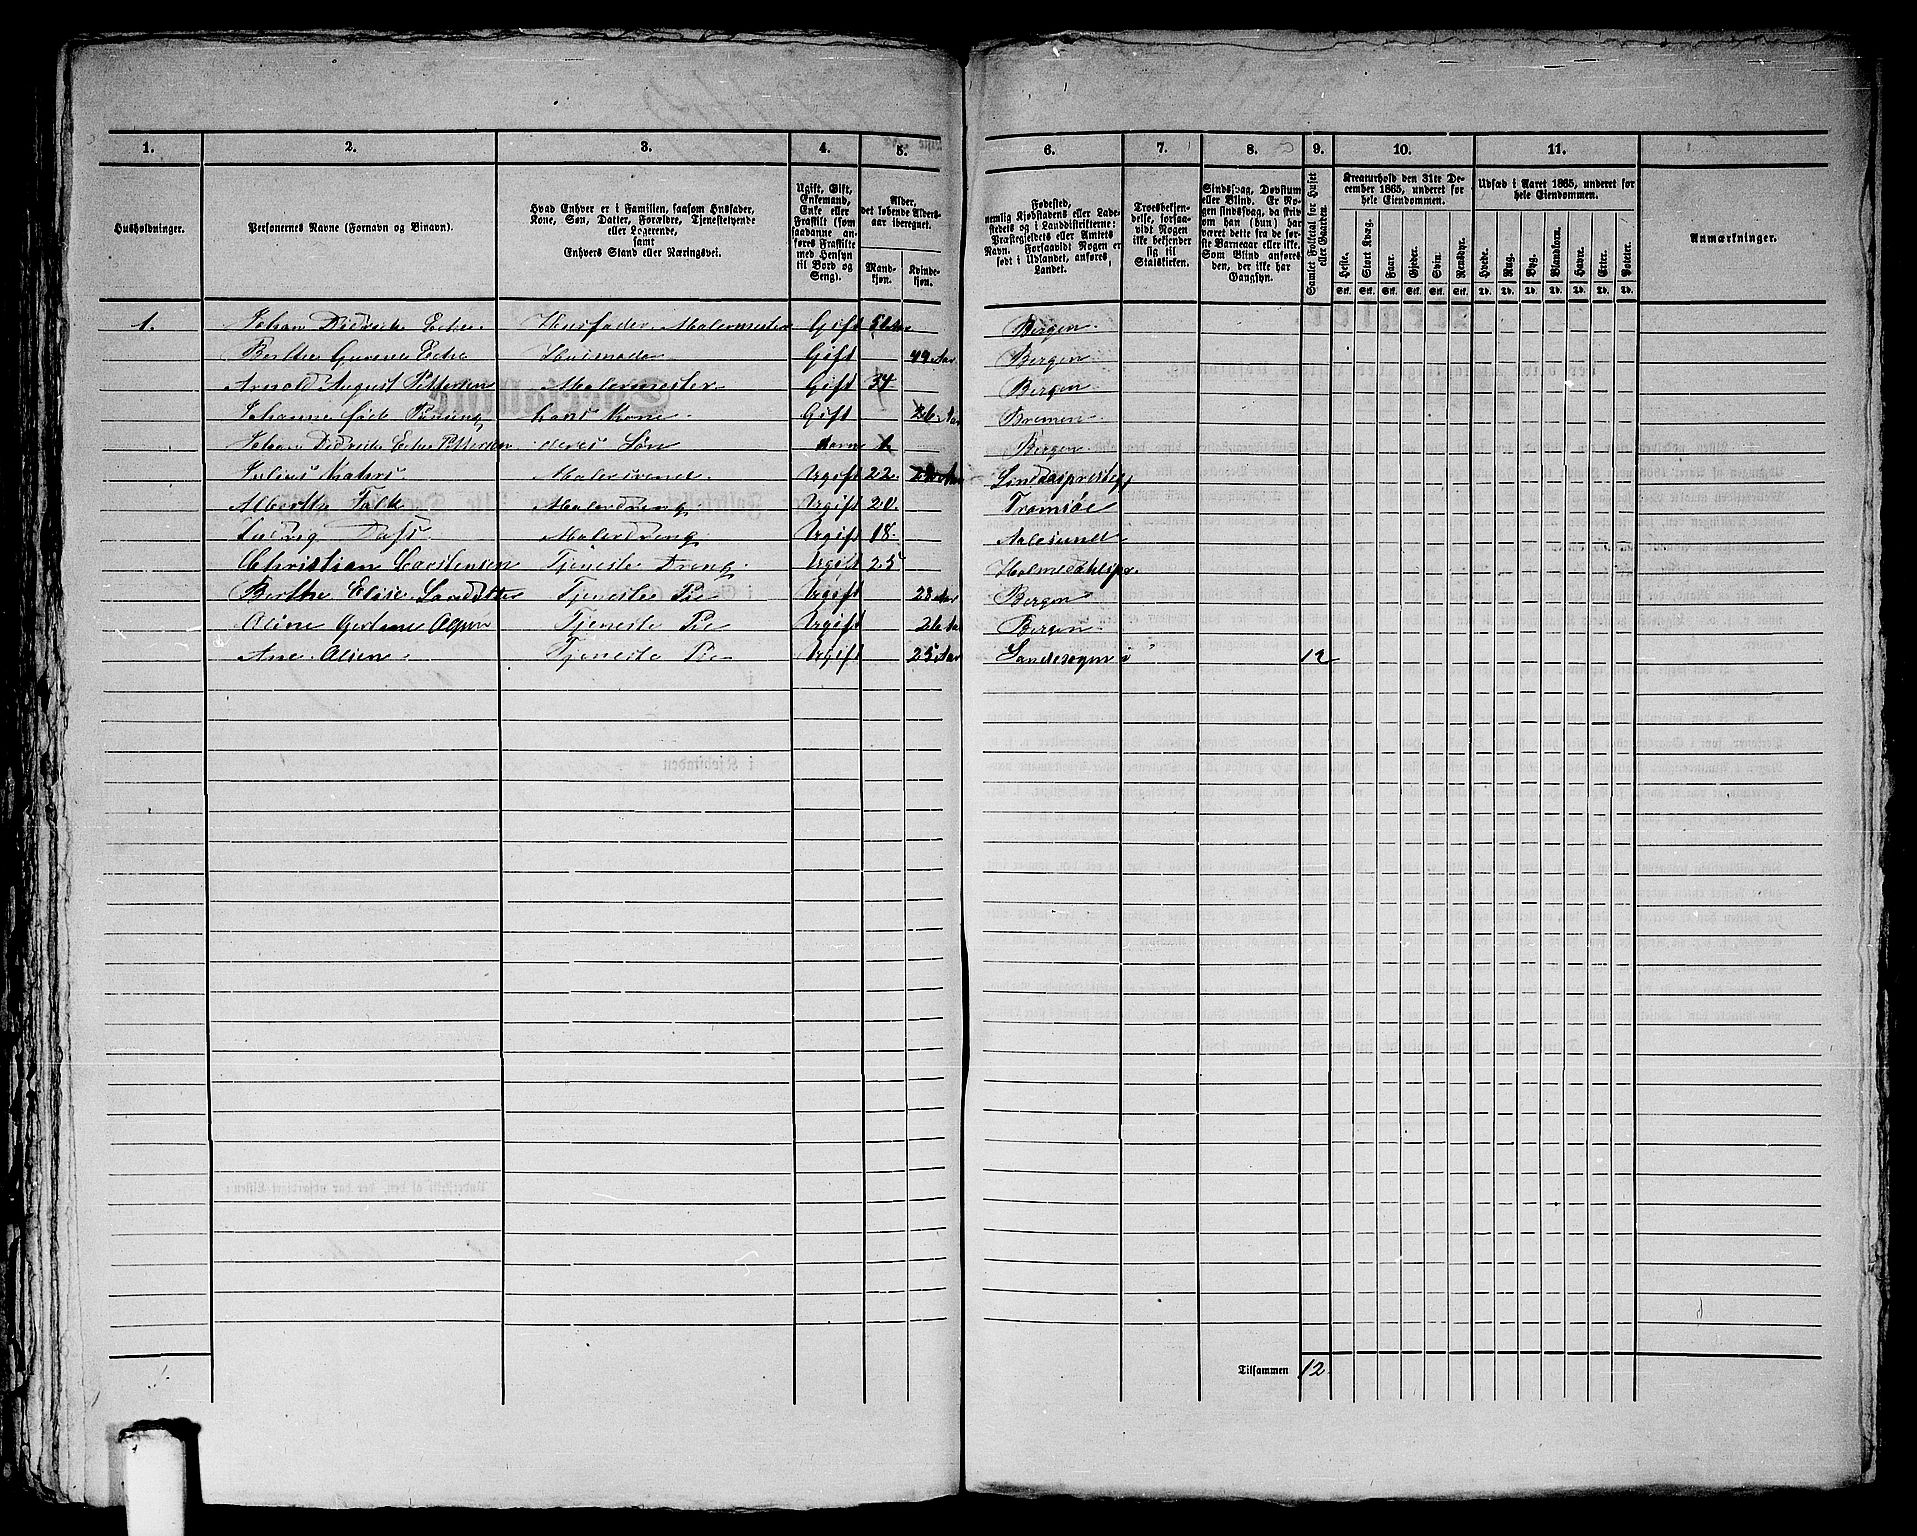 1. 2. 3. 4. 5. 6. 7. 8. 9. 10. 11.
Husholdninger.
Personernes Navne (Fornavn og Binavn).
Hvad Enhver er i Familien, saasom Husfader,
Kone, Søn, Datter, Forældre, Tjenestetyende
eller Logerende,
samt
Enhvers Stand eller Næringsvei.
Ugift, Gift,
Enkemand,
Enke eller
Fraskilt (som
saadanne an-
føres Fraskilte
med Hensyn
til Bord og
Seng).
Alder,
det løbende Alders-
aar iberegnet.
Mand-
kjøn.
Kvinde-
kjøn.
Fødested,
nemlig Kjøbstadens eller Lade-
stedets og i Landdistrikterne:
Præstegjeldets eller Amtets
Navn. Forsaavidt Nogen er
født i Udlandet, anføres
Landet.
Troesbekjen-
delse, forsaa-
vidt Nogen
ikke bekjender
sig til
Statskirken.
Sindssvag, Døvstum
eller Blind. Er No-
gen sindssvag, da skriv
om han (hun) har
været dette fra de før-
ste Barneaar eller ikke.
Som Blind anføres
den, der ikke har
Gangsyn.
Samlet Folketal for Huset
eller Gaarden.
Kreaturhold den 31te De-
cember 1865, underet for
hele Eiendommen.
Heste. Stort Kvæg. Faar. Gjeder. Svin. Rensdyr.
Stk. Stk. Stk. Stk. Stk. Stk.
Udsæd i Aaret 1865, underet for
hele Eiendommen.
Hvede. Rug. Byg. Blandkorn. Havre. Erter. Poteter.
Td. Td. Td. Td. Td. Td. Td.
Anmærkninger.
1. Johan Didrich Husfader Malermester Gift Bergen.
Gift 49 Aar Bergen
Arnold August Pettersen Malermester Gift 34 Bergen
Johanne Kone. Gift 26 Aar Bremen
Johan Didrich Pettersen deres Søn 1 Bergen.
Julius Malersvend. Ugift 22
Falck Malerdreng Ugift 20. Tromsøe
Ludvig Malerdreng Ugift 18. Aalesund
Christian Carstensen Tjeneste Dreng Ugift 25
Berthe Elise Tjeneste Pie Ugift 28 Aar Bergen
Oline Tjeneste Pie Ugift 26 Aar Bergen.
Ane Olsen Tjeneste Pie Ugift 25 Aar Sandesogen i 12
Tilsammen 12